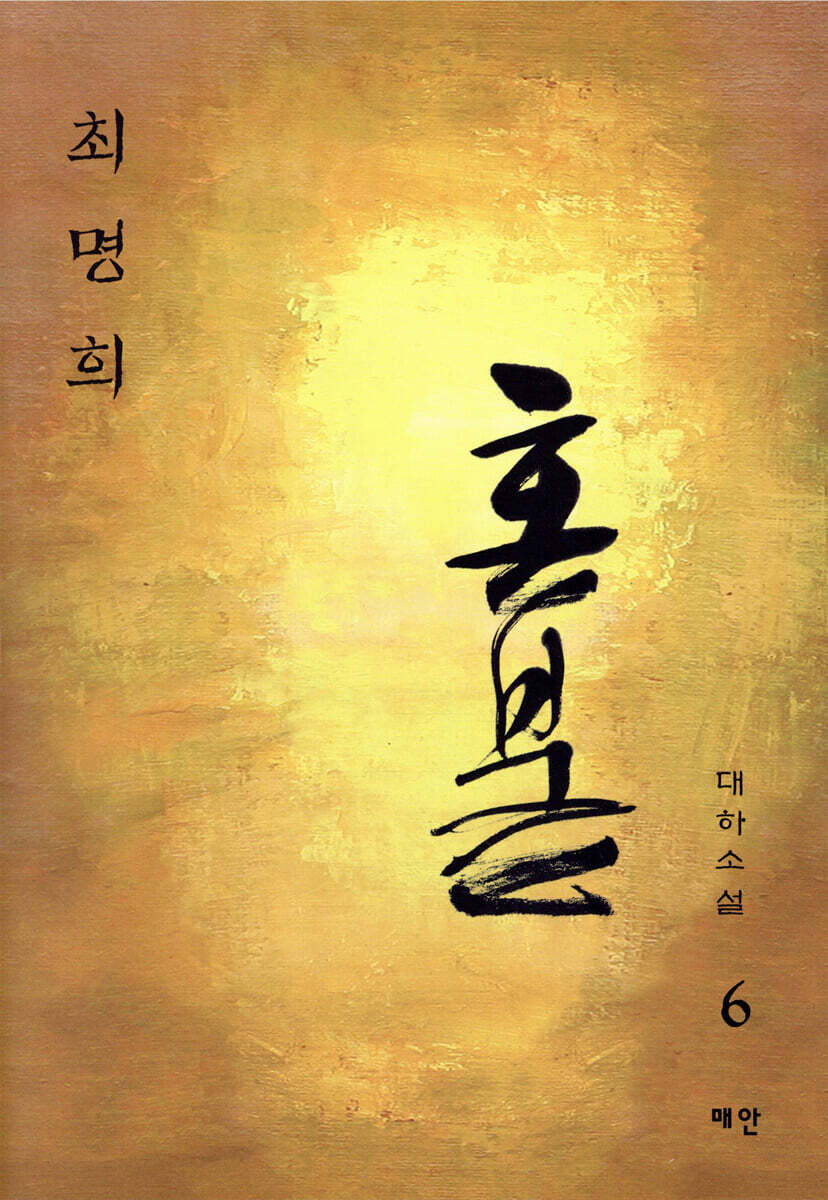 최명희
혼불
대하소설
6
매안